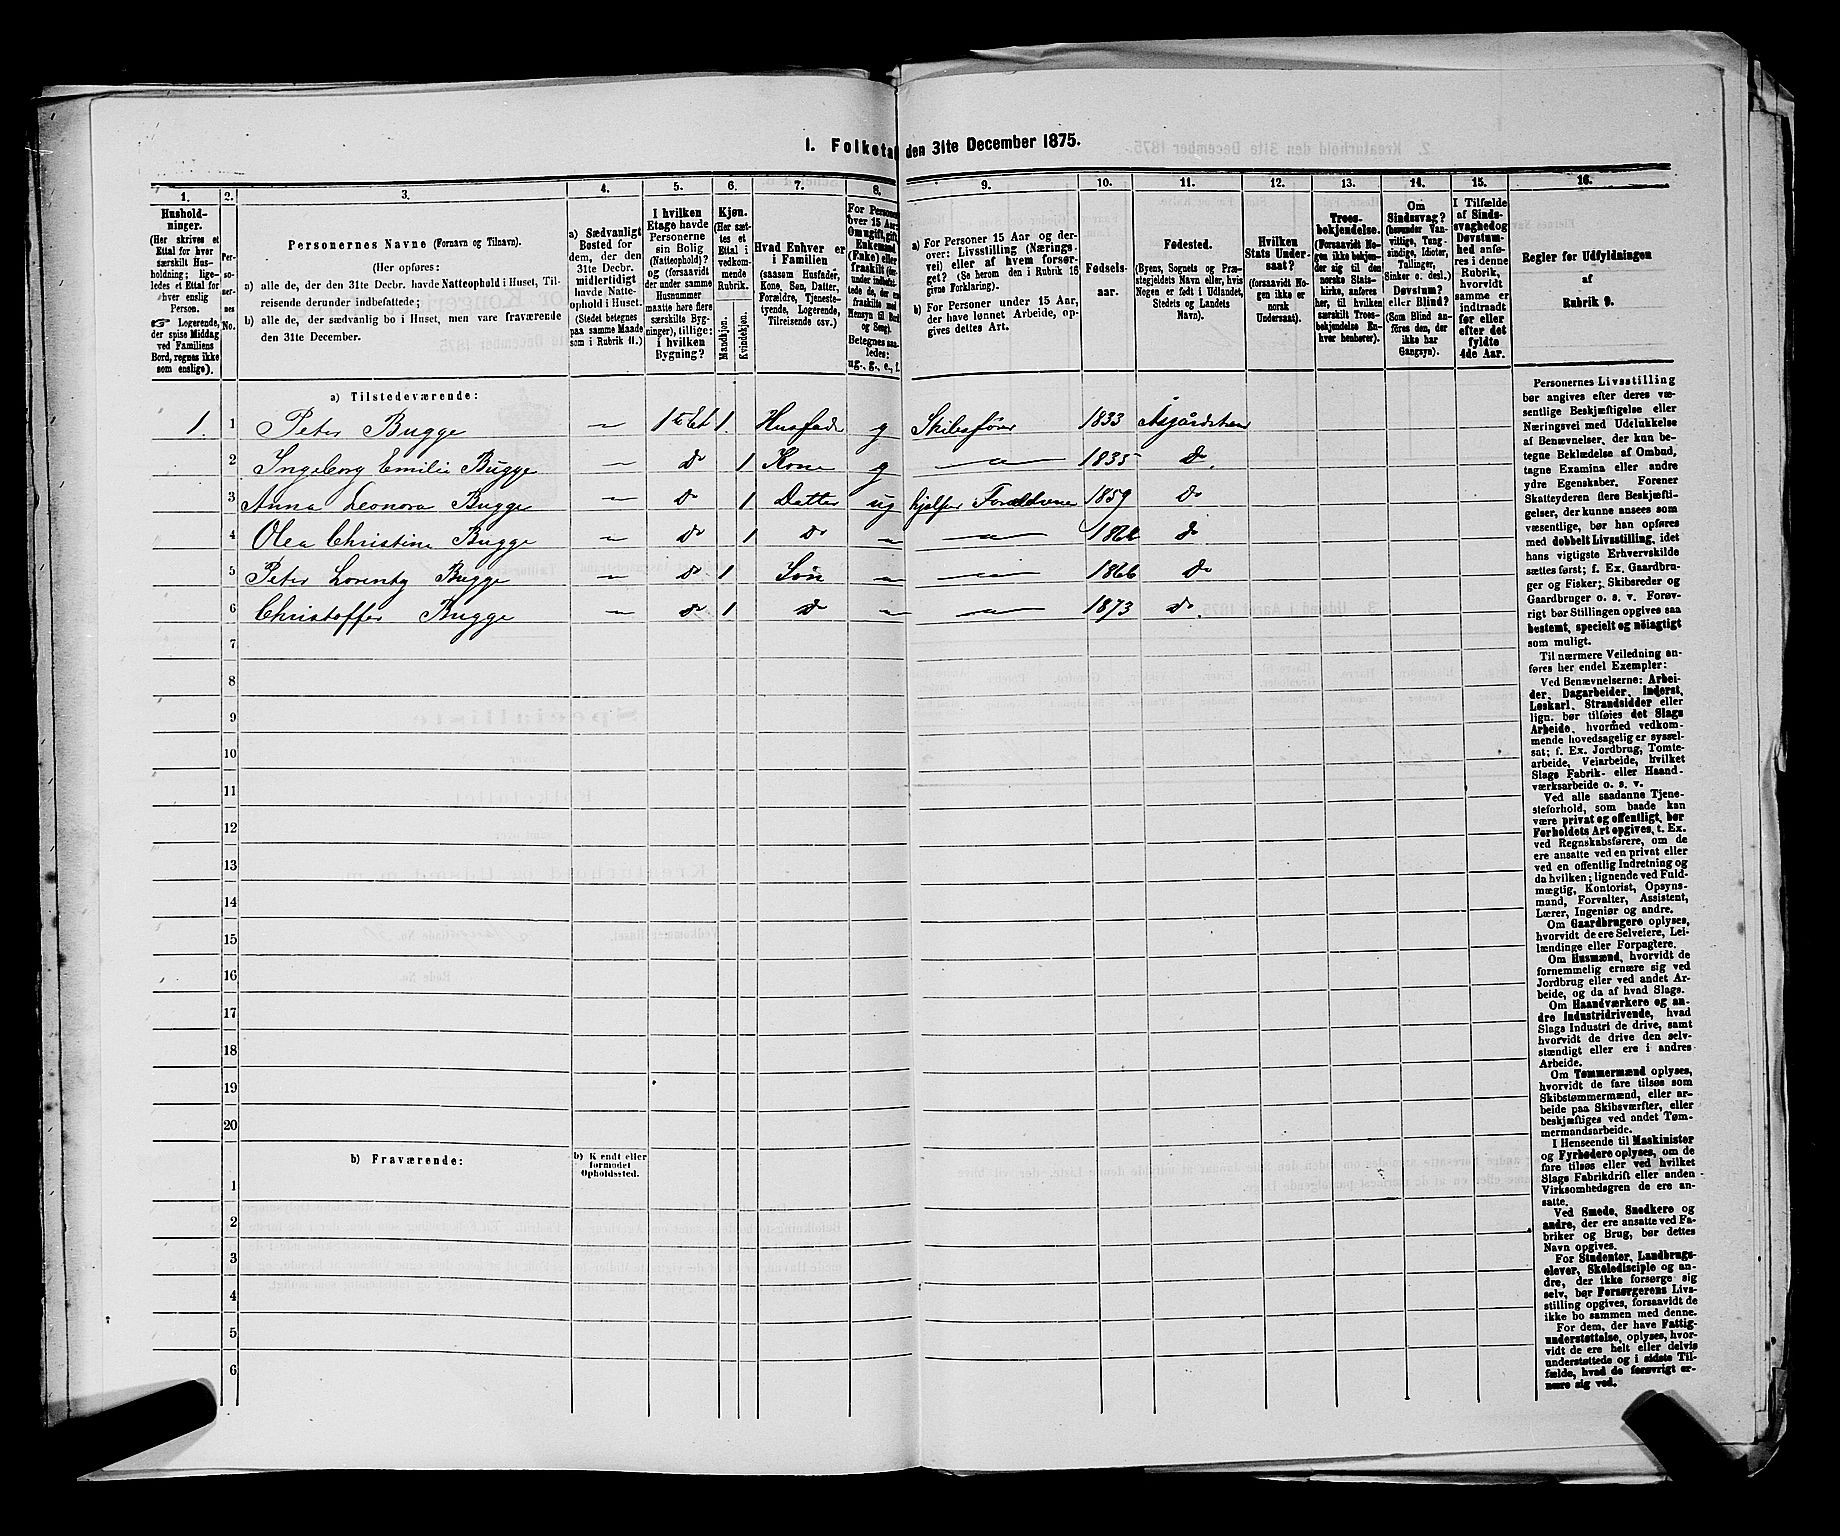 1. Folketal den 31te December 1875.
1. 2. 3. 4. 5. 6. 7. 8. 9. 10. 11. 12. 13. 14. 15. 16.
Hushold-
ninger.
(Her skrives et
Ettal for hver
særskilt Hus-
holdning; lige-
ledes et Ettal for
hver enslig
Person.
☞ Logerende,
der spise Middag
ved Familiens
Bord, regnes ikke
som enslige).
Per-
so-
ner-
nes
No.
Personernes Navne (Fornavn og Tilnavn).
(Her opføres:
a) alle de, der den 31te Decbr. havde Natteophold i Huset, Til-
reisende derunder indbefattede;
b) alle de, der sædvanlig bo i Huset, men vare fraværende
den 31te December.
a) Sædvanligt
Bosted for
dem, der den
31te Decbr.
midlertidigt
havde Natte-
ophold i Huset.
(Stedet betegnes
paa samme Maade
som i Rubrik 11.)
I hvilken
Etage havde
Personerne
sin Bolig
(Natteophold)?
og (forsaavidt
der under samme
Husnummer
maatte høre flere
særskilte Byg-
ninger), tillige:
i hvilken
Bygning?
Kjøn.
(Her sæt-
tes et
Ettal i
vedkom-
mende
Rubrik.
Mandkjøn.
Kvindekjøn.
Hvad Enhver er
i Familien
(saasom Husfader,
Kone, Søn, Datter,
Forældre, Tjeneste-
tyende, Logerende,
Tilreisende osv.)
For Personer
over 15 Aar:
Om ugift, gift,
Enkemand
(Enke) eller
fraskilt
Hensyn til Bord
og Seng).
Betegnes saa-
ledes:
ug., g., e., f.
a) For Personer 15 Aar og der-
over: Livsstilling (Nærings-
vei) eller af hvem forsør-
get? (Se herom den i Rubrik 16
givne Forklaring).
b) For Personer under 15 Aar,
der have lønnet Arbeide, op-
gives dettes Art.
Fødsels-
aar.
Fødested.
(Byens, Sognets og Præ-
stegjeldets Navn eller, hvis
Nogen er født i Udlandet,
Stedets og Landets
Navn).
Hvilken
Stats Under-
saat?
(forsaavidt No-
gen ikke er
norsk
Undersaat).
Troes-
bekjendelse.
(Forsaavidt No-
gen ikke bekjen-
der sig til den
norske Stats-
kirke, anføres
her, til hvilken
særskilt Troes-
bekjendelse En-
hver henhører).
Om
Sindssvag?
(herunder Van-
vittige, Tung-
sindige, Idioter,
Tullinger,
Sinker o. desl.)
Døvstum?
eller Blind?
(Som Blind an-
føres den, der
ikke har
Gangsyn).
I Tilfælde
af Sinds-
svaghed og
Døvstum-
hed anfø-
res i denne
Rubrik,
hvorvidt
samme er
indtraadt
før eller
efter det
fyldte
4de Aar.
Regler for Udfyldningen
af
Rubrik 9.
a) Tilstedeværende:
1. 1 Peter Bugge – 1te Et 1. Husfader g Skibsfører 1833 Åsgårdstran
2 Ingeborg Emilie Bugge – do 1 Kone g – 1835 do
3 Anna Leonora Bugge – do 1 Datter ug hjælper Forældrene 1859 do
4 Olea Christine Bugge – do 1 do – – do
5 Peter Lorentz Bugge – do 1 Søn – – 1866 do
6 Christoffer Bugge – do 1 do – – 1873 do
7
8
9
10
11
12
13
14
15
16
17
18
19
20
b) Fraværende:
b) Kjendt eller
formodet
Opholdssted.
1
2
3
4
5
6
Personernes Livsstilling
bør angives efter deres væ-
sentlige Beskjæftigelse eller
Næringsvei med Udelukkelse
af Benævnelser, der kun be-
tegne Beklædelse af Ombud,
tagne Examina eller andre
ydre Egenskaber. Forener
Skatteyderen flere Beskjæfti-
gelser, der kunne ansees som
væsentlige, bør han opføres
med dobbelt Livsstilling, idet
hans vigtigste Erhvervskilde
sættes først; f. Ex. Gaardbru-
ger og Fisker; Skibsreder og
Gaardbruger o. s. v. Forøv-
rigt bør Stillingen opgives saa
bestemt, specielt og nøiagtigt
som muligt.
Til nærmere Veiledning an-
føres her endel Exempler:
Ved Benævnelserne: Arbei-
der, Dagarbeider, Inderst,
Løskarl, Strandsidder eller
lign. bør tilføies det Slags
Arbeide, hvormed vedkom-
mende hovedsagelig er syssel-
sat; f. Ex. Jordbrug, Tomte-
arbeide, Veiarbeide, hvilket
Slags Fabrik- eller Haand-
værksarbeide o. s. v.
Ved alle saadanne Tjene-
steforhold, som baade kan
være privat og offentligt, bør
Forholdets Art opgives, t. Ex.
ved Regnskabsførere, om de
ere ansatte ved en privat eller
ved en offentlig Indretning og
da hvilken; lignende ved Fuld-
mægtig, Kontorist, Opsyns-
mand, Forvalter, Assistent,
Lærer, Ingeniør og andre.
Om Gaardbrugere oplyses,
hvorvidt de ere Selveiere, Lei-
lændinge eller Forpagtere.
Om Husmænd, hvorvidt de
fornemmelig ernære sig ved
Jordbrug eller ved andet Ar-
beide, og da af hvad Slags.
Om Haandværkere og an-
dre Industridrivende, hvad
Slags Industri de drive, samt
hvorvidt de drive den selv-
stændigt eller ere i andres
Arbeide.
Om Tømmermænd oplyses,
hvorvidt de fare tilsøs som
Skibstømmermænd, eller ar-
beide paa Skibsværfter, eller
beskjæftiges ved andet Tøm-
mermandsarbeide.
I Henseende til Maskinister
og Fyrbødere oplyses, om de
fare tilsøs eller ved hvilket
Slags Fabrikdrift eller anden
Virksomhedsgren de ere an-
satte.
Ved Smede, Snedkere og
andre, der ere ansatte ved Fa-
briker og Brug, bør dettes
Navn opgives.
For Studenter, Landbrugs-
elever, Skoledisciple og an-
dre, der ikke forsørge sig
selv, bør Forsørgerens Livs-
stilling opgives, forsaavidt de
ikke bo sammen med denne.
For dem, der have Fattig-
understøttelse, oplyses, hvor-
vidt de ere helt eller delvis
understøttede og i sidste Til-
fælde, hvad de forøvrigt er-
nære sig ved.